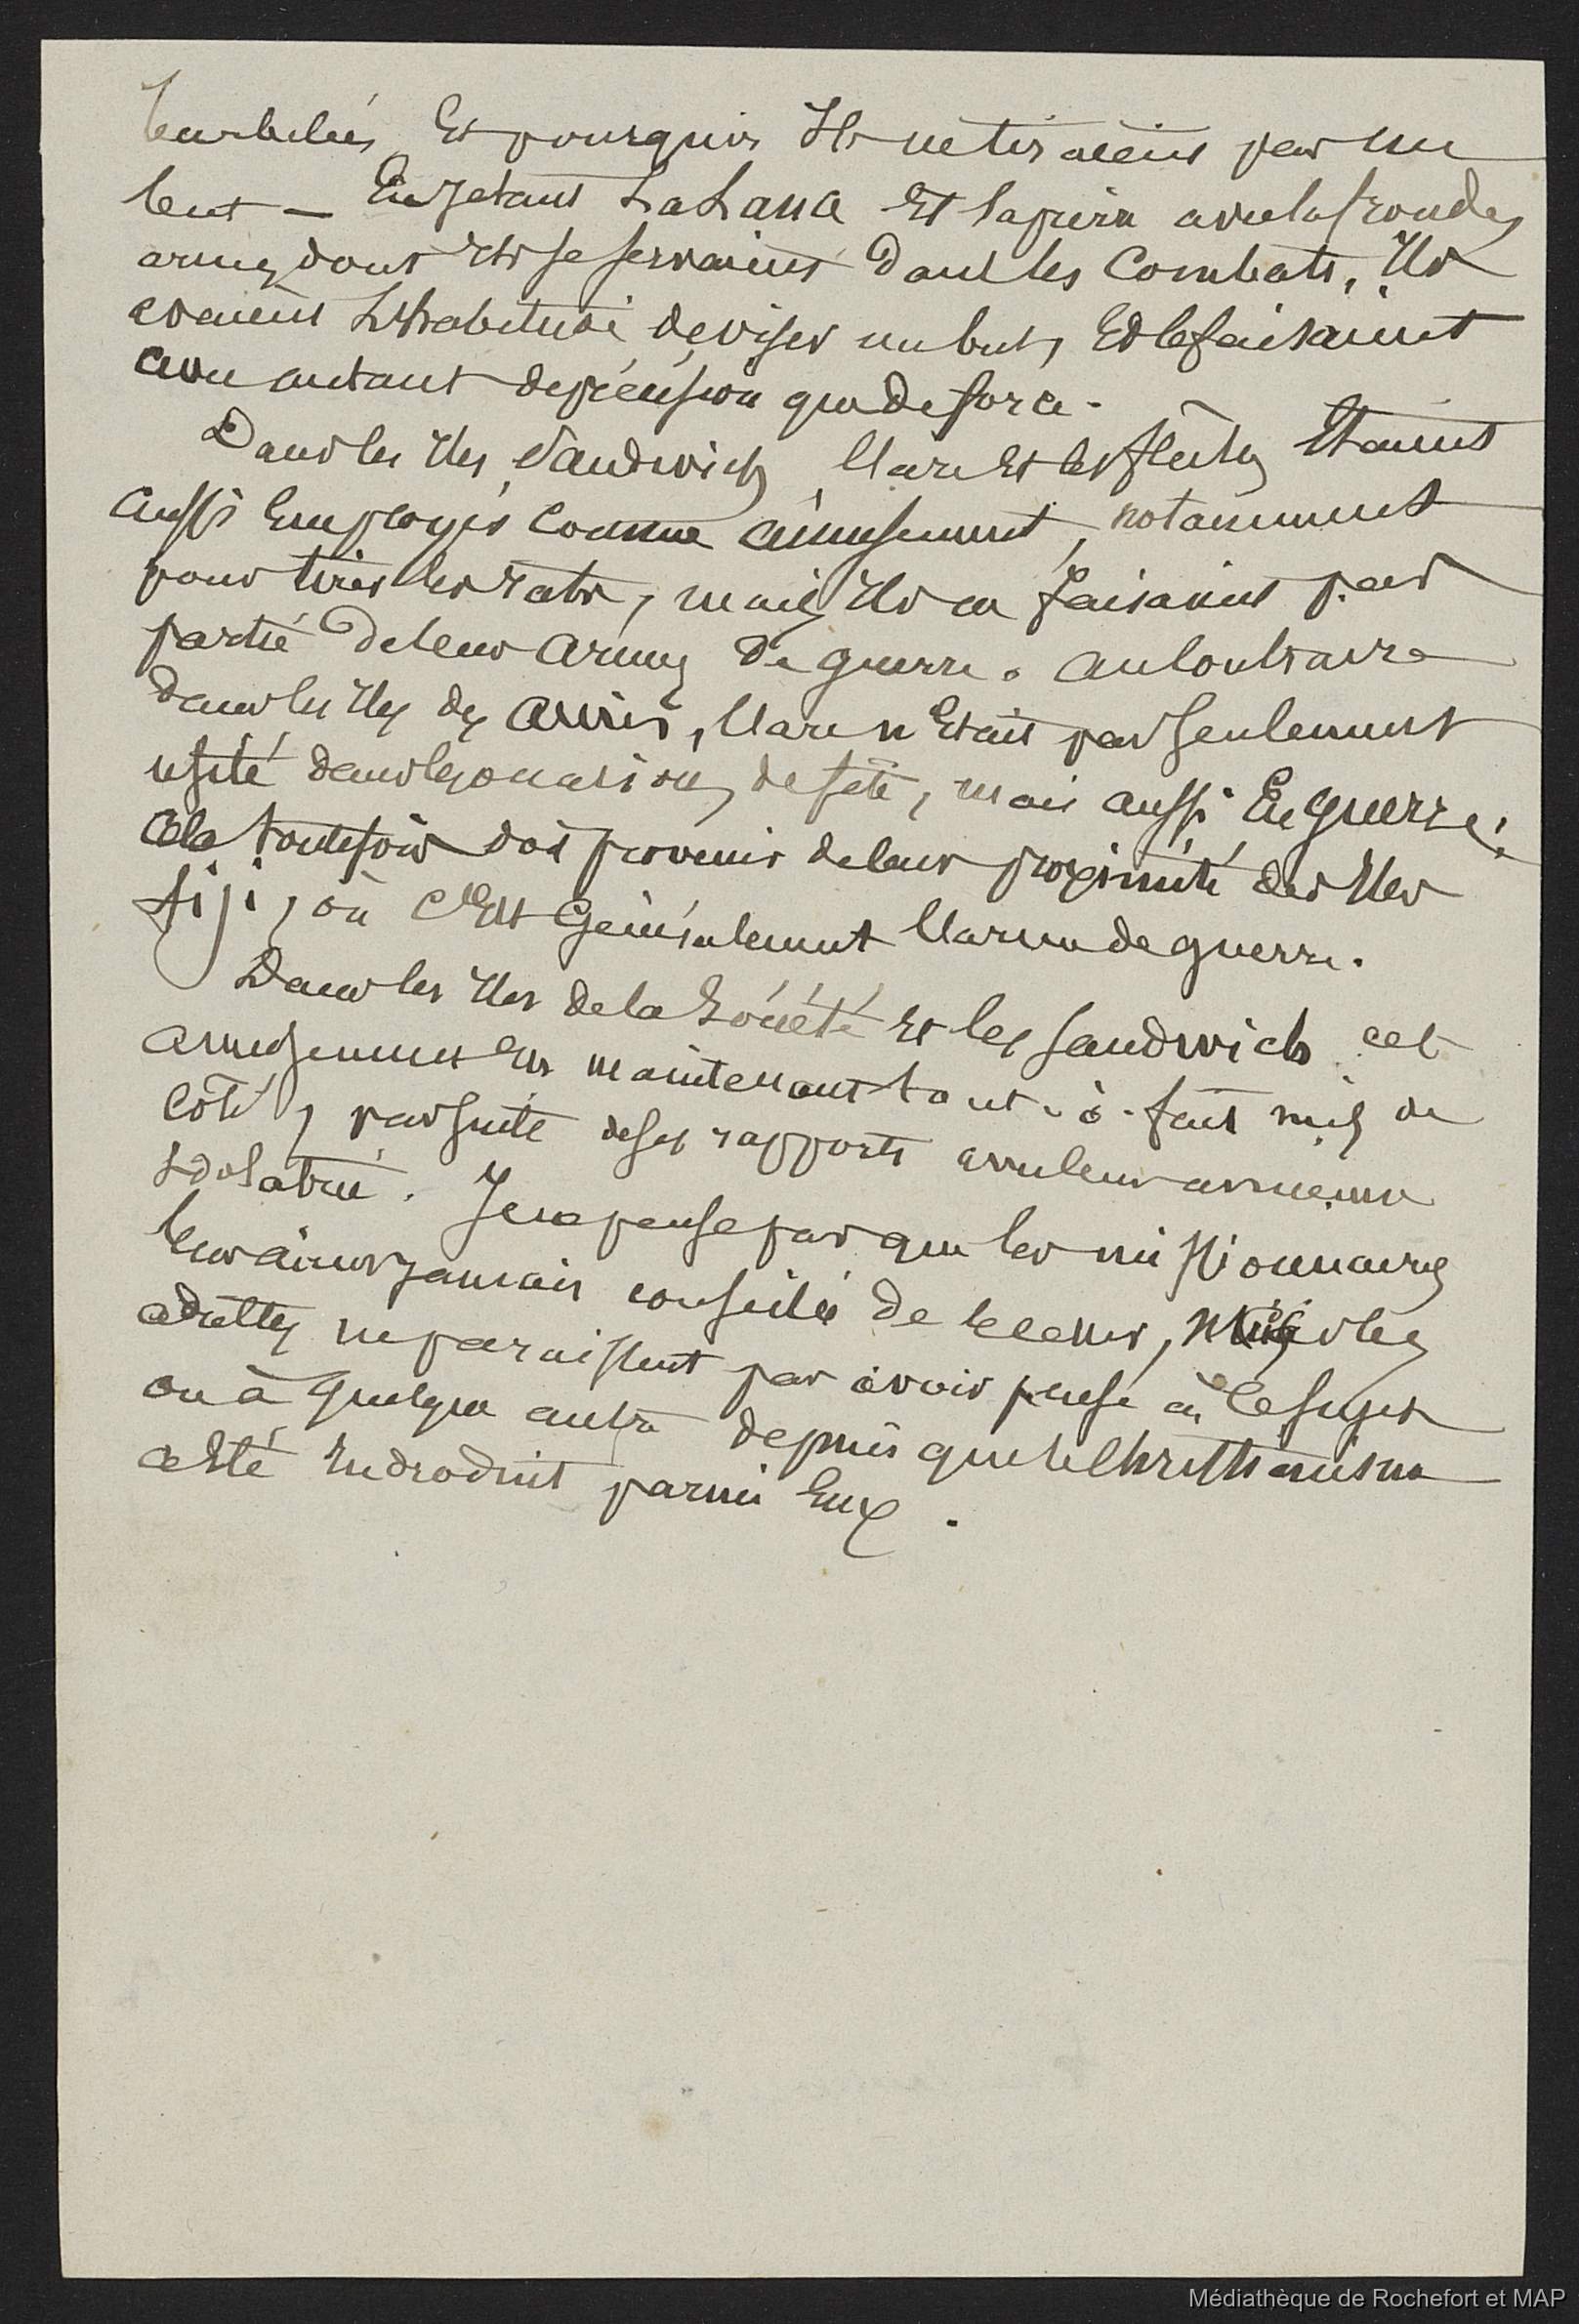 Et pourquoi Ils ne tiraient pas un
but — En jetant La Lance Et la pierre avec la fronde,
armes dont Ils se servaient dans les Combats, Ils
avaient L'habitude de viser un but, Et le faisaient
avec autant de précision que de force.
Dans les Iles Sandwich l'arc Et les flèches Etaient
aussi Employés comme amusement, notamment
pour tirer les rats, mais Ils ne faisaient pas
partie de leurs armes de guerre. au Contraire
dans les Iles des amis, l'arc n'Etait pas seulement
usité dans les occasions de fête, mais aussi En guerre;
Cela toutefois doit provenir de leur proximité des Iles
fiji, où c'Est Généralement l'arme de guerre.
Dans les Iles de la Société Et les Sandwich cet
amusement Est maintenant tout-à-fait mis de
côté, par suite de ses rapports avec leur ancienne
Idolatrie. Je ne pense pas que les missionnaires
leur aient jamais conseillé de le cesser, les
adultes ne paraissent pas avoir pensé à ce sujet
ou à quelque autre depuis que le Christianisme
a Eté Indroduit parmi Eux.
Médiathèque de Rochefort et MAP